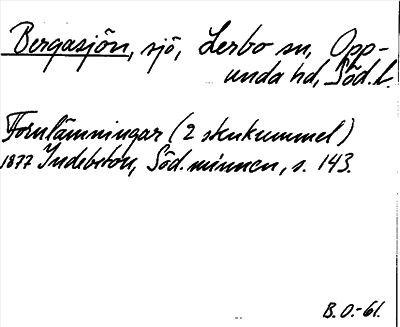 Bergasjön, sjö, Lerbo sn, Opp-
unda hd, Söd. l.
Fornlämningar (2 stenkummel)
1877 Indebetou, Söd. minnen, s. 143.
B. O.-61.